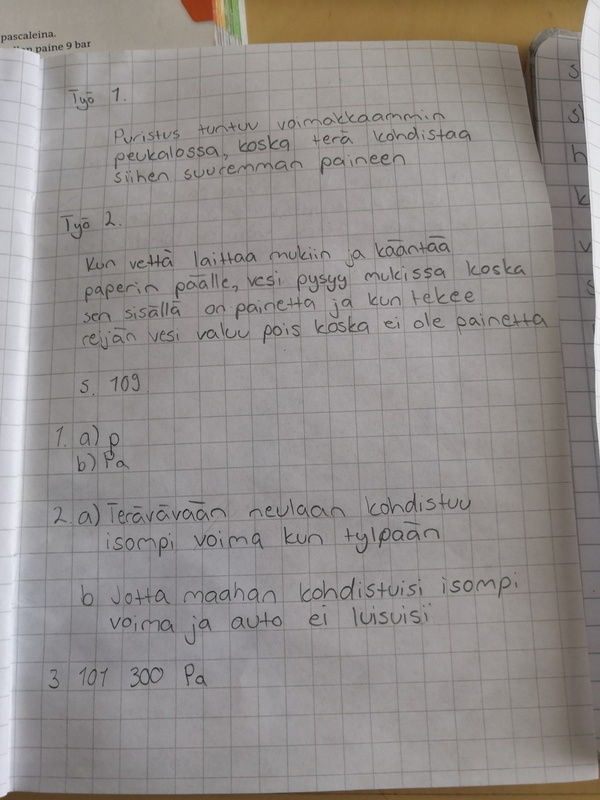 pascaleina.
paine 9 bar
Työ 1.
Puristus tuntuu voimakkaammin
peukalossa, koska terä kohdistaa
siihen suuremman paineen
Työ 2.
Kun vettä laittaa mukiin ja kääntää
paperin päälle, vesi pysyy mukissa koska
sen sisällä on painetta ja kun tekee
reijän vesi valuu pois koska ei ole painetta
s. 109
1. a) p
b) Pa
2. a) Terävävään neulaan kohdistuu
isompi voima kun tylpään
b Jotta maahan kohdistuisi isompi
voima ja auto ei luisuisi
3 101 300 Pa